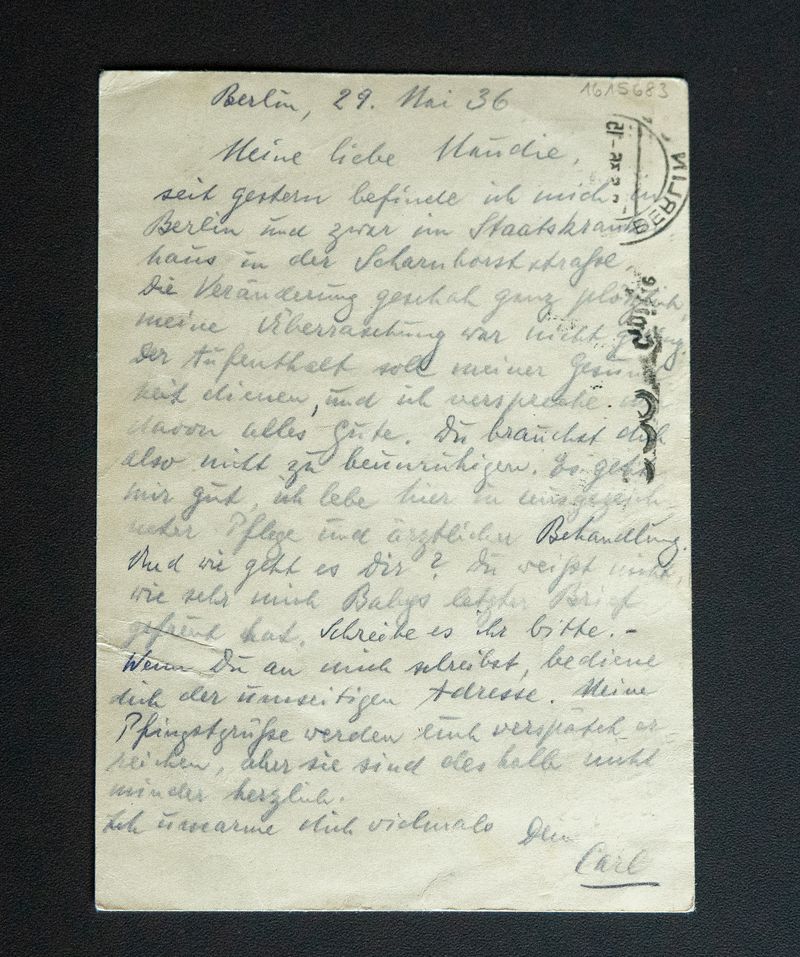 1615683
Berlin, 29. Mai 36
Meine liebe Maudie,
seit gestern befinde ich mich in
Berlin und zwar im Staatskranken
haus in der Scharnhorststraße.
Die Veränderung geschah ganz plötzlich,
meine Überraschung war nicht gering.
Der Aufenthalt soll meiner Gesund
heit dienen, und ich verspreche mir
davon alles Gute. Du brauchst dich
also nicht zu beunruhigen. Es geht
mir gut, ich lebe hier in ausgezeich-
neter Pflege und ärztlicher Behandlung.
Und wie geht es Dir? Du weißt nicht,
wie sehr mich Babys letzter Brief
gefreut hat. Schreibe es ihr bitte. -
Wenn Du an mich schreibst, bediene
dich der umseitigen Adresse. Meine
Pfingstgrüße werden Euch verspätet er-
reichen, aber sie sind deshalb nicht
minder herzlich.
Ich umarme dich vielmals Dein
Carl
BERLIN